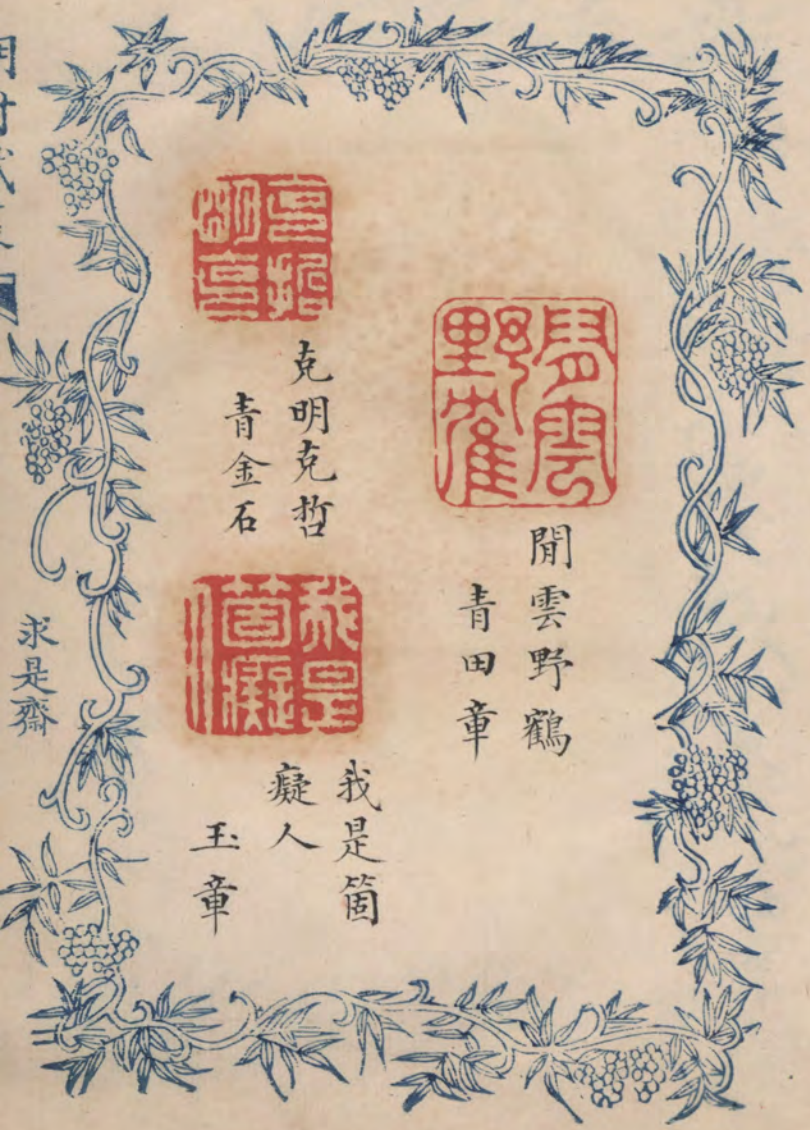 閒雲野鶴
閒雲野鶴
青田章
克明克哲
克明克哲
青金石
我是箇癡人
我是箇
癡人
玉章
求是齋